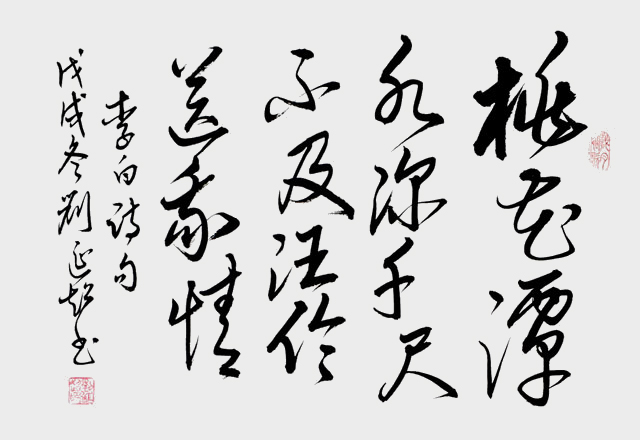 桃花潭
水深千尺
不及汪伦
送我情
李白诗句
戊戌冬刘延龙书